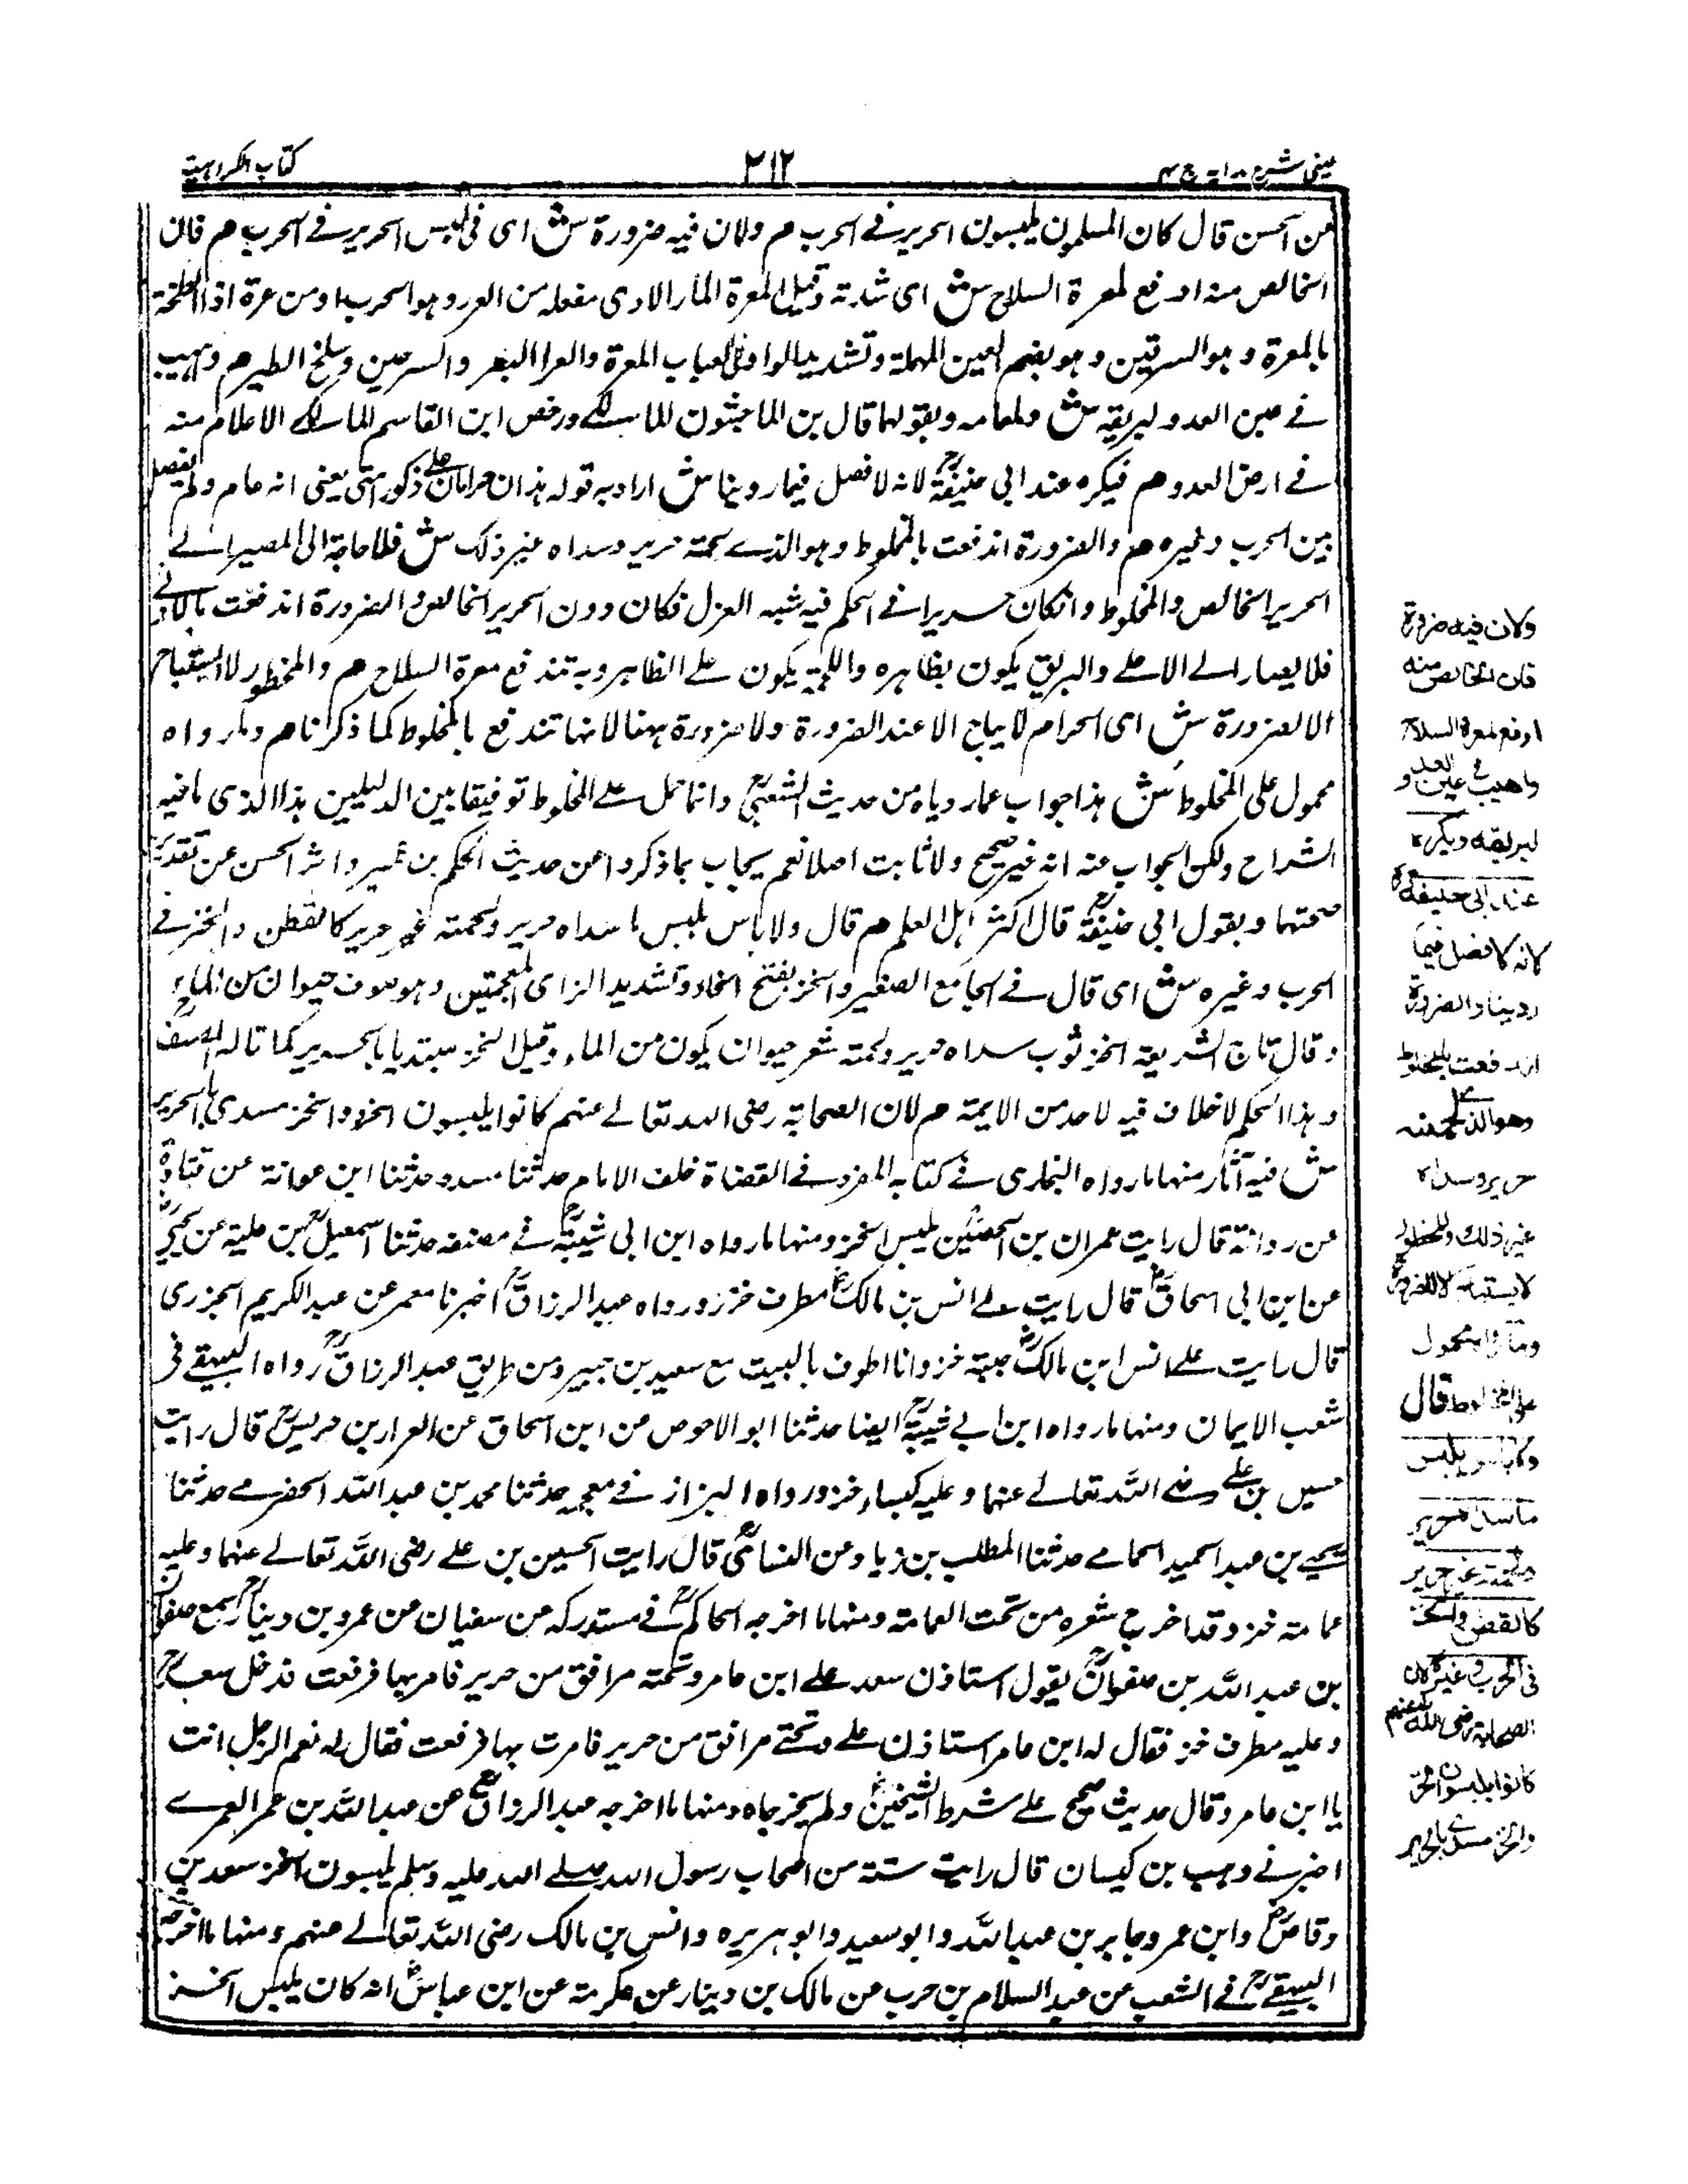 عینی شرح ہدایہ ج ۴
۲۱۲
کتاب الکراہیۃ
عن الحسن قال کان المسلمون یلبسون الحریر فی الحرب م ولان فیہ ضرورۃ ش ای فی لبس الحریر فی الحرب م فان
الخالص منہ ادفع لمعرۃ السلاح ش ای شدتہ وقیل المعرۃ المأر الاذی مفعلہ من العر وہو الحرب او من عرۃ اذا لطخہ
بالمعرۃ وہو السرقین وہو بضم العین المہملۃ وتشدید الواو فی العباب المعرۃ والعرا البعر والسرجین وسلخ الطیر م واہیب
فی عین العدو لبریقہ ش ولمعانہ وبقولہا قال بن الماجشون المالکی ورخص ابن القاسم المالکی الاعلام منہ
فی ارض العدو م فیکرہ عند ابی حنیفۃؒ لانہ لا فصل فیما روینا ش اراد بہ قولہ ہذان حرامان علی ذکور امتی یعنی انہ عام ولم یفصل
بین الحرب وغیرہ م والضرورۃ اندفعت بالمخلوط وہو الذی لحمتہ حریر وسداہ غیر ذلک ش فلا حاجۃ الی المصیر الی
الحریر الخالص والمخلوط وانکان حریرا فی الحکم فیہ شبہ الغزل فکان دون الحریر الخالص والضرورۃ اندفعت بالادنی
فلا یصار الی الاعلی والبریق یکون بظاہرہ واللحمۃ یکون علی الظاہر وبہ تندفع معرۃ السلاح م والمحظور لا یستباح
الا لضرورۃ ش ای الحرام لا یباح الا عند الضرورۃ ولا ضرورۃ ہہنا لانہا تندفع بالمخلوط کما ذکرنا م وما رواہ
محمول علی المخلوط ش ہذا جواب عما رویاہ من حدیث الشعبیؒ وانما حمل علی المخلوط توفیقا بین الدلیلین ہذا الذی مافیہ
الشراح ولکن الجواب عنہ انہ غیر صحیح ولا ثابت اصلا نعم یجاب بما ذکروا عن حدیث الحکم بن عمیر واثر الحسن عن تقدیر
صحتہا وبقول ابی حنیفۃؒ قال اکثر اہل العلم م قال ولا باس بلبس ما سداہ حریر ولحمتہ غیر حریر کالقطن والخز فی
الحرب وغیرہ ش ای قال فی الجامع الصغیر والخز بفتح الخاء وتشدید الزای المعجمتین وہو صوف حیوان من الماء
وقال تاج الشریعۃ الخز ثوب سداہ حریر ولحمتہ شعر حیوان یکون من الماء وقیل الخز مبتدیا بالحریر کما قالہ المصنف
وہذا الحکم لا خلاف فیہ لاحد من الایمۃ م لان الصحابۃ رضی اللہ تعالی عنہم کانوا یلبسون الخز والخز مسدی بالحریر
ش فیہ آثار منہا ما رواہ البخاری فی کتابہ المفرد فی القضاۃ خلف الامام حدثنا مسدد حدثنا ابن عوانۃ عن قتادۃ
عن زرارۃ قال رایت عمران بن الحصینؓ یلبس الخز ومنہا ما رواہ ابن ابی شیبۃؒ فی مصنفہ حدثنا اسمعیلؒ بن علیۃ عن یحییٰ
عن ابن ابی اسحاقؒ قال رایت علی انس بن مالکؓ مطرف خز ورواہ عبد الرزاقؒ اخبرنا معمر عن عبد الکریم الجزری
قال رایت علی انس ابن مالکؓ جبۃ خز وانا اطوف بالبیت مع سعید بن جبیر ومن طریق عبد الرزاقؒ رواہ البیہقی فی
شعب الایمان ومنہا ما رواہ ابن ابی شیبۃؒ ایضا حدثنا ابو الاحوص من ابن اسحاق عن العرار بن حریسؒ قال رایت
حسین بن علی رضی اللہ تعالی عنہما وعلیہ کساء خز ورواہ البزاز فی معجمہ حدثنا محمد بن عبد اللہ الحضرمی حدثنا
یحیی بن عبد الحمید الحمامی حدثنا المطلب بن زیاد عن النسائیؒ قال رایت الحسین بن علی رضی اللہ تعالی عنہما وعلیہ
عمامتہ خز وقد اخرج شعرہ من تحت العمامۃ ومنہا ما اخرجہ الحاکمؒ فی مستدرکہ عن سفیان عن عمرو بن دینارؒ سمع صفوان
بن عبد اللہ بن صفوانؒ یقول استاذن سعد علی ابن عامر وتحتہ مرافق من حریر فامر بہا فرفعت فدخل سعدؓ
وعلیہ مطرف خز فقال لہ ابن عامر استاذن علی وتحتی مرافق من حریر فامرت بہا فرفعت فقال لہ نعم الرجل انت
یا ابن عامر وقال حدیث صحیح علی شرط الشیخینؒ ولم یخرجاہ ومنہا ما اخرجہ عبد الرزاقؒ عن عبد اللہ بن عمر العمری
اخبرنی وہب بن کیسان قال رایت ستۃ من اصحاب رسول اللہ صلی اللہ علیہ وسلم یلبسون الخز سعد بن
وقاصؓ وابن عمر وجابر بن عبد اللہ وابو سعید وابو ہریرہ وانس بن مالک رضی اللہ تعالی عنہم ومنہا ما اخرجہ
البیہقیؒ فی الشعب عن عبد السلام بن حرب عن مالک بن دینار عن عکرمۃ عن ابن عباسؓ انہ کان یلبس الخز
ولان فیہ ضرورۃ
فان الخالص منہ
ادفع لمعرۃ السلاح
واھیب فی عین العدو
لبریقہ ویکرہ
عند ابی حنیفۃ
لانہ لا فصل فیما
روینا والضرورۃ
اندفعت بالمخلوط
وھو الذی لحمتہ
حریر وسداہ
غیر ذلک والمحظور
لا یستباح الا للضرورۃ
وما رواہ محمول
علی المخلوط قال
ولا باس بلبس
ما سداہ حریر
ولحمتہ غیر حریر
کالقطن والخز
فی الحرب وغیرہ لان
الصحابۃ رضی اللہ عنہم
کانوا یلبسون الخز
والخز مسدی بالحریر